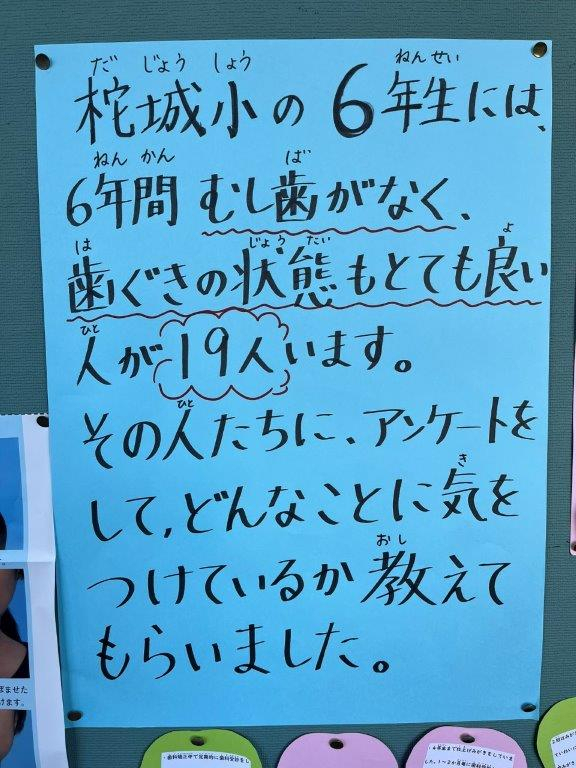 柁城小の6年生には、
6年間むし歯がなく、
歯ぐきの状態もとても良い
人が19人います。
その人たちに、アンケートを
して、どんなことに気を
つけているか教えて
もらいました。
だ じょう しょう ねんせい
ねん かん ば
は じょう たい よ
ひと
ひと
き
おし